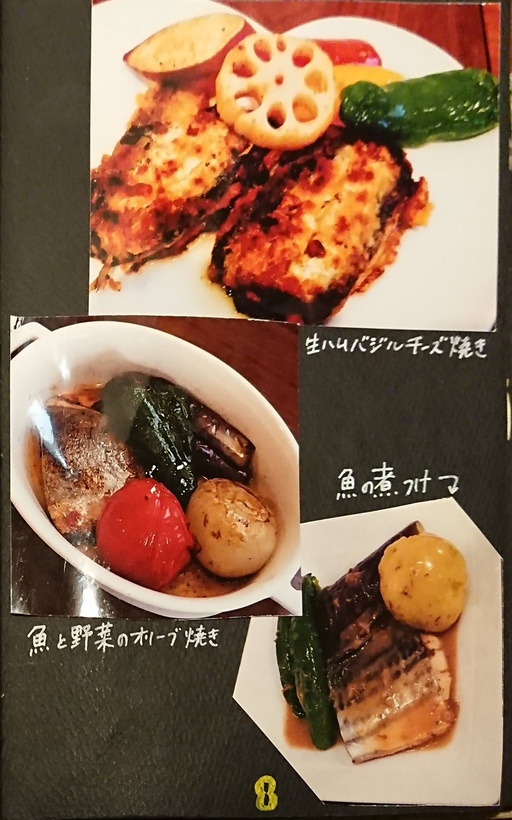 生ハムバジルチーズ焼き
魚の煮つけ
魚と野菜のオリーブ焼き
8